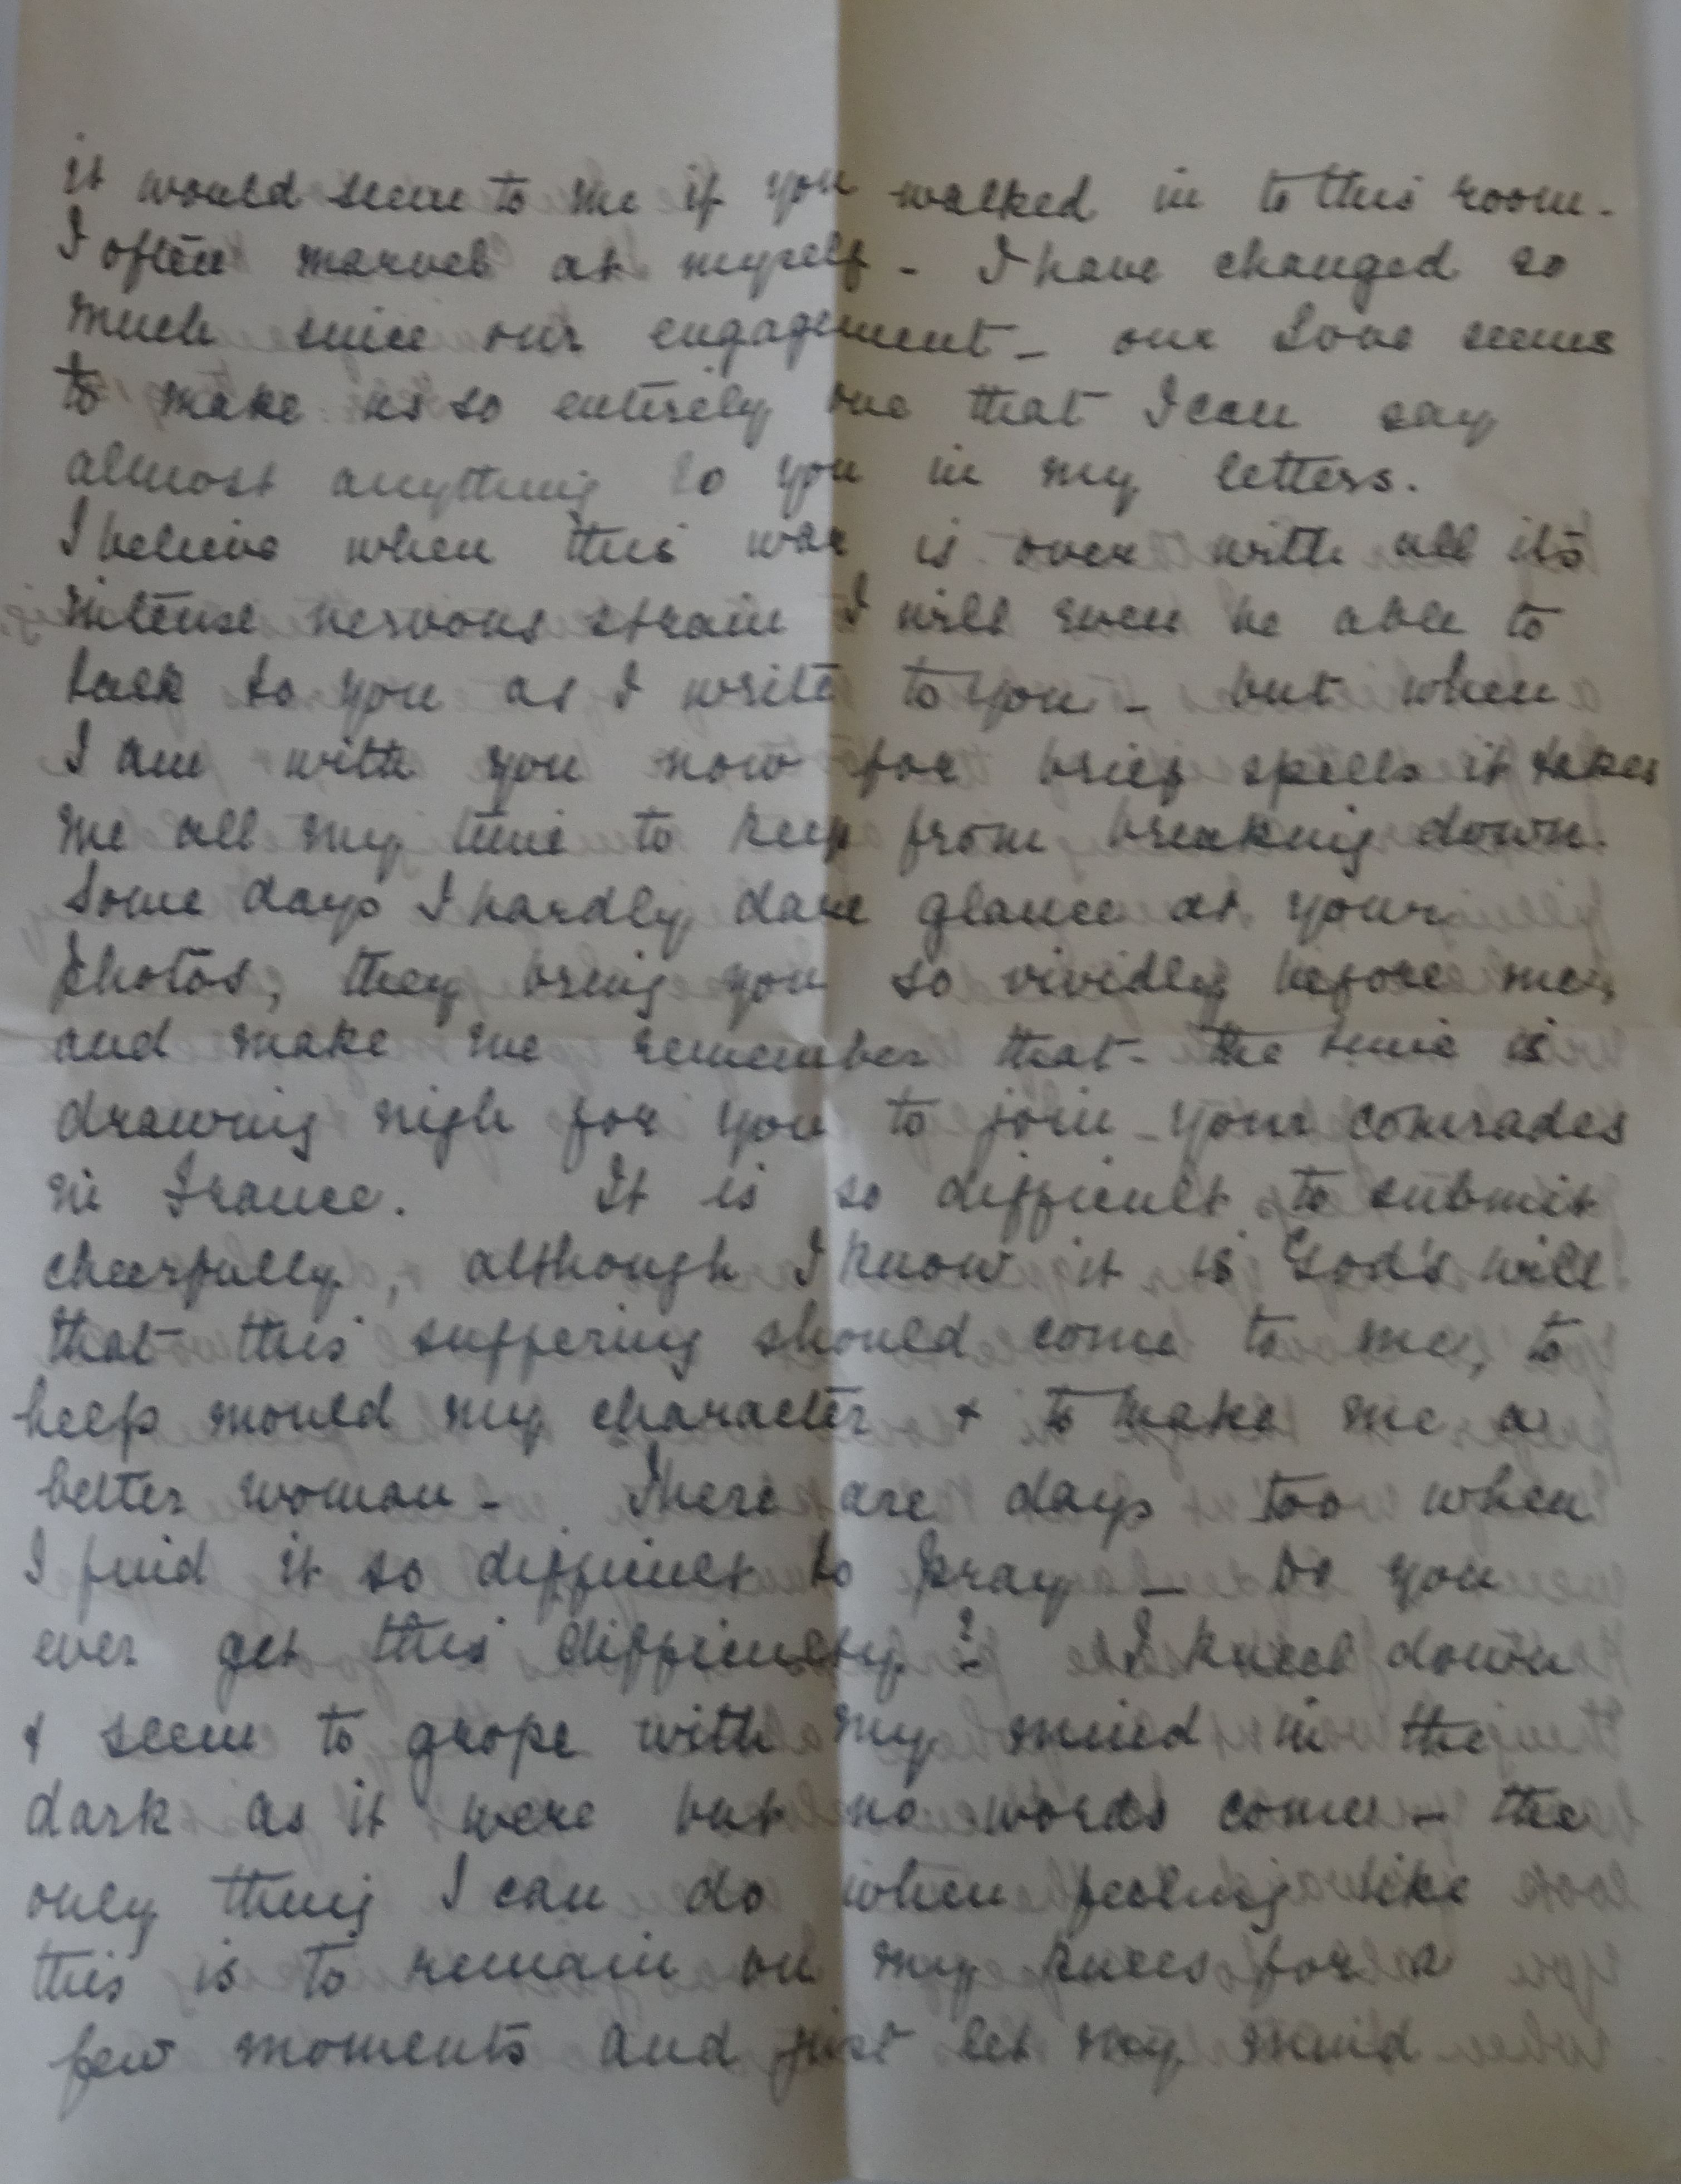 it would seem to me if you walked in to this room.
I often marvel at myself - I have changed so
much since our engagement - our love seems
to make us so entirely one that I can say
almost anything to you in my letters.
I believe when this war is over with all its
intense nervous strain I will even be able to
talk to you as I write to you - but when
I am with you now for brief spells it takes
me all my time to keep from breaking down.
Some days I hardly dare glance at your
photos, they bring you so vividly before me,
and make me remember that the time is
drawing nigh for you to join your comrades
in France. It is so difficult to submit
cheerfully, although I know it is God's will
that this suffering should come to me, to
help mould my character & to make me a
better woman - There are days too when
I find it so difficult to pray - Do you
ever get this difficulty? - I kneel down
& seem to grope with my mind in the
dark as it were but no words come - the
only thing I can do when feeling like
this is to remain on my knees for a
few moments and just let my mind